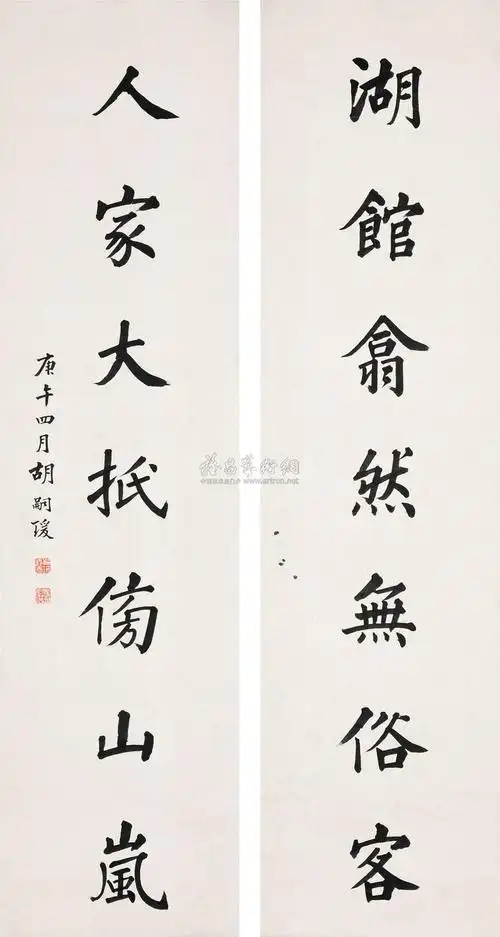 湖館翕然無俗客
人家大抵傍山嵐
庚午四月胡嗣瑗
www.artron.net